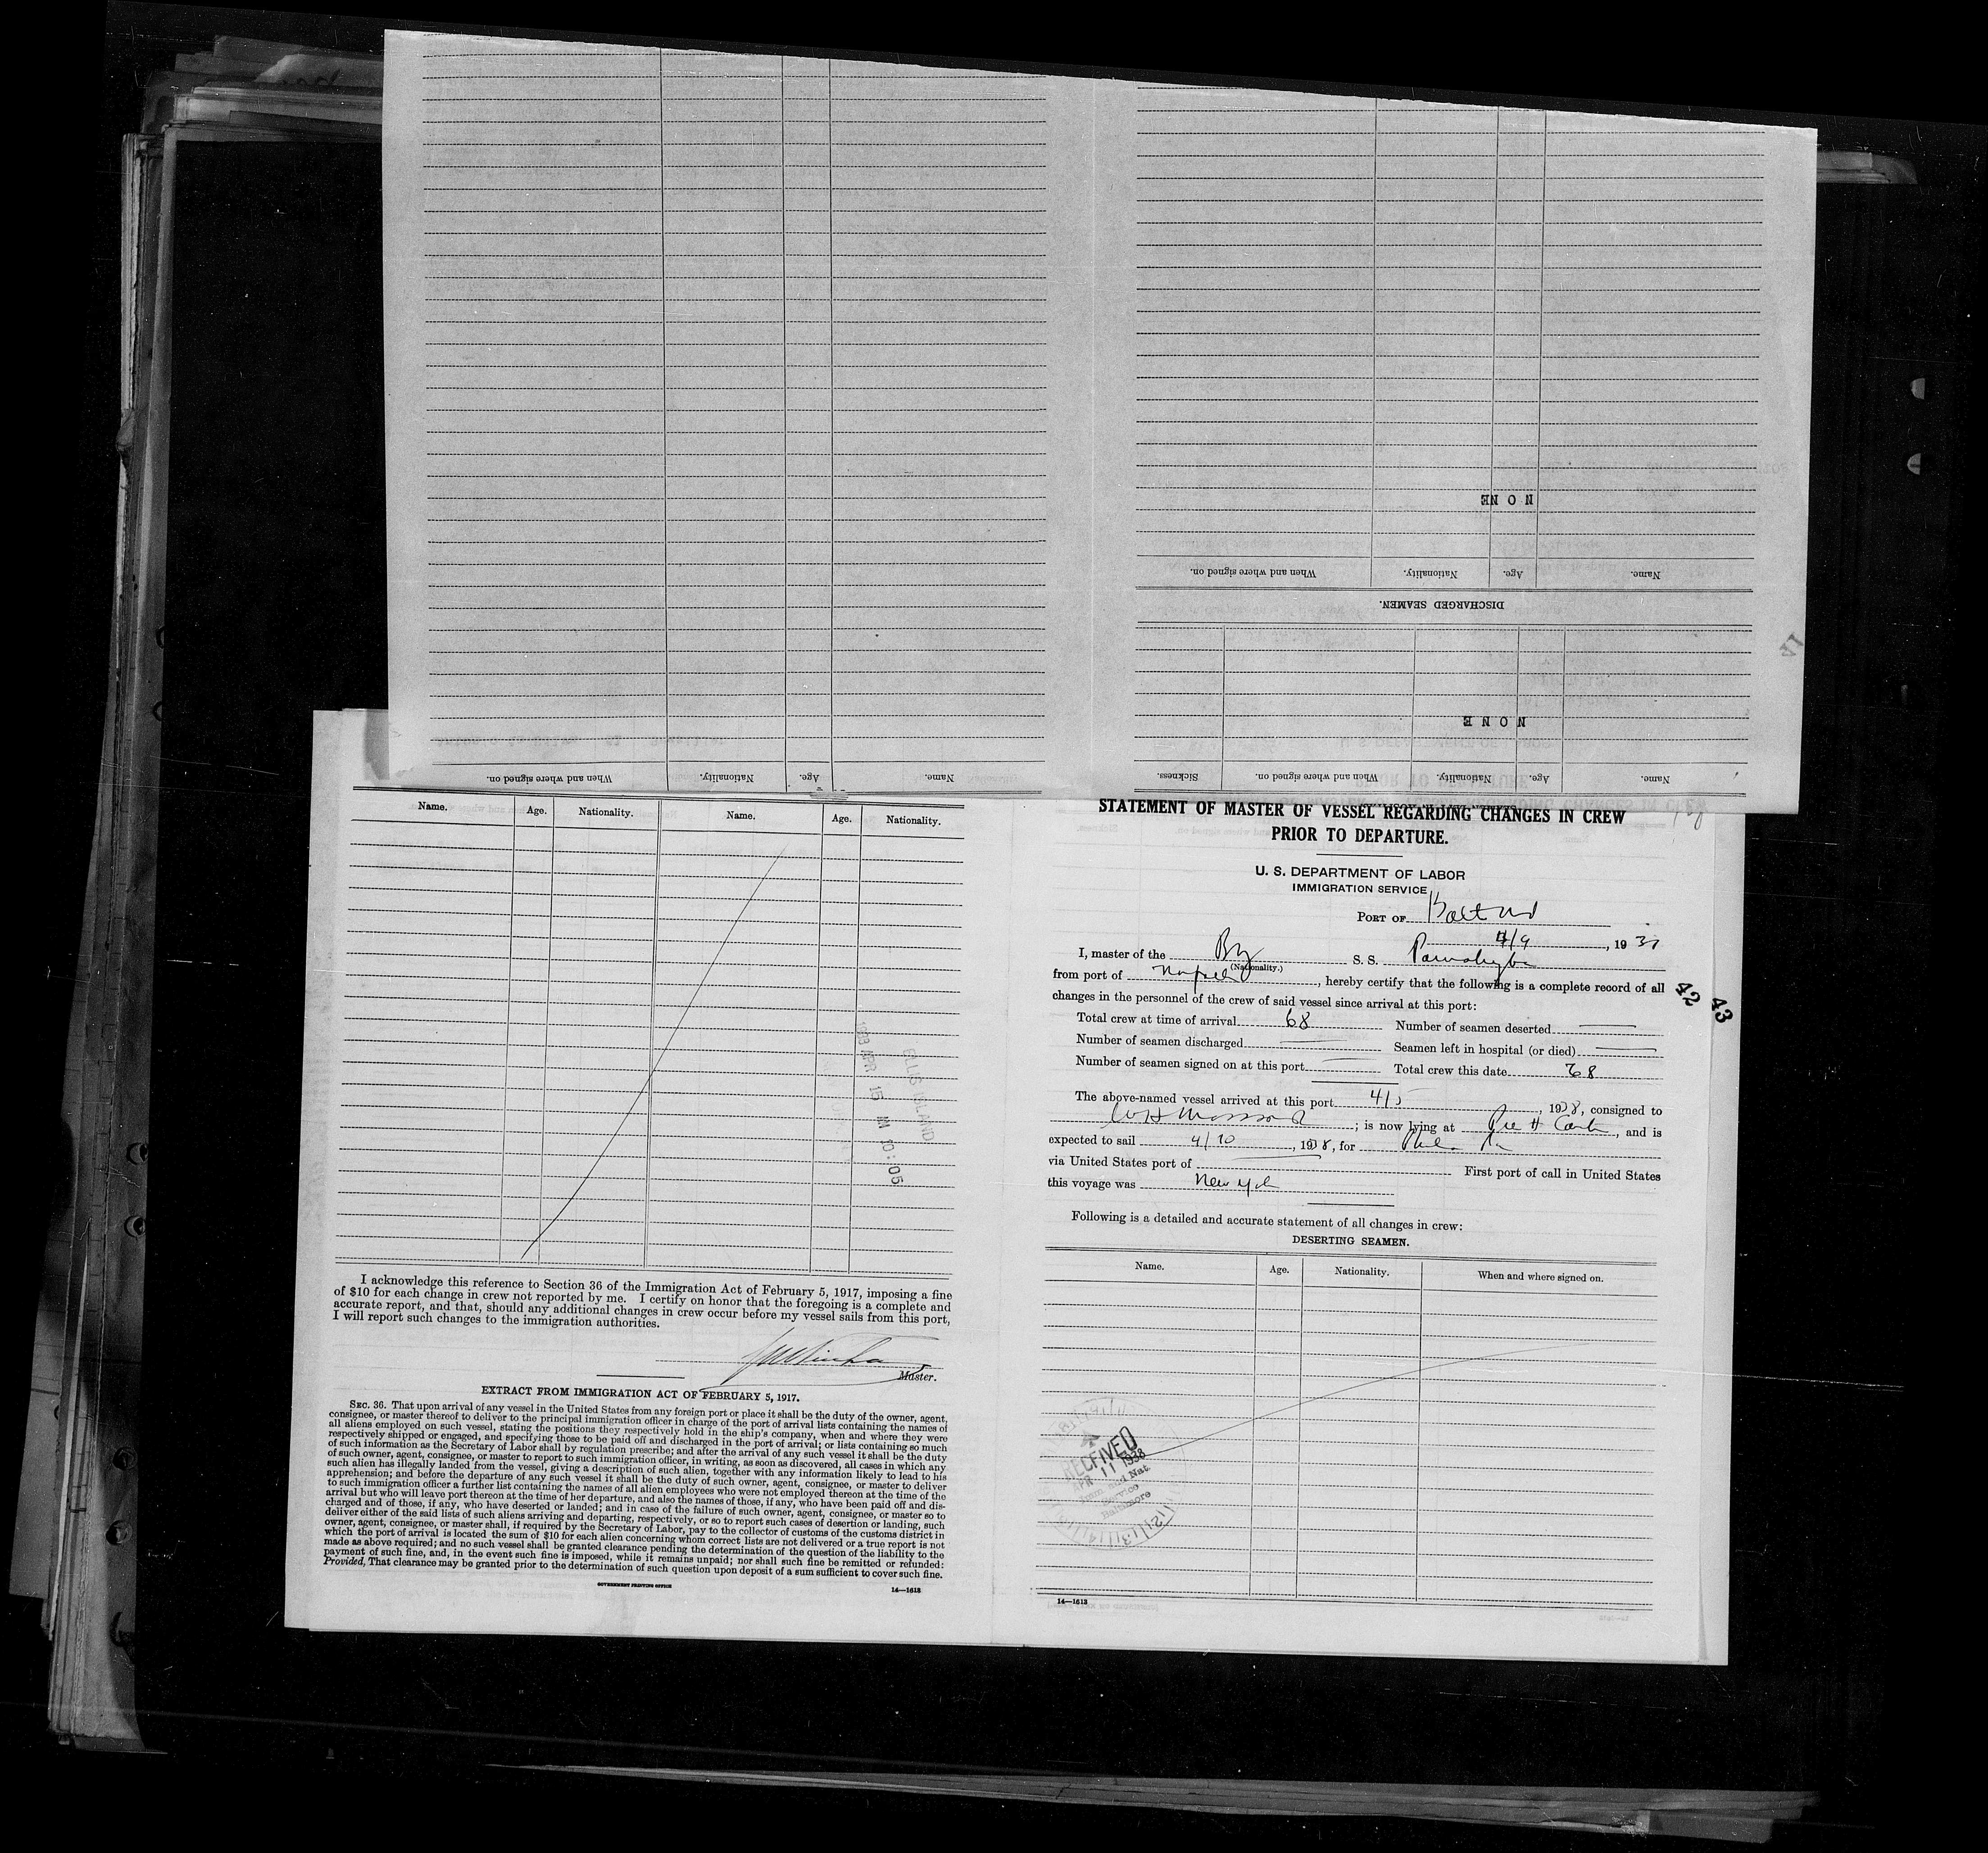 When and where signed on.
Nationality.
Age.
Name.
Name.
Age.
Nationality.
When and where signed on.
Sickness.
NONE
DISCHARGED SEAMEN.
Name.
Age.
Nationality.
When and where signed on.
NONE
Name. Age. Nationality. Name. Age. Nationality.
ELLIS ISLAND
1938 APR 15 AM 10:05
I acknowledge this reference to Section 36 of the Immigration Act of February 5, 1917, imposing a fine
of $10 for each change in crew not reported by me. I certify on honor that the foregoing is a complete and
accurate report, and that, should any additional changes in crew occur before my vessel sails from this port,
I will report such changes to the immigration authorities.
Master.
EXTRACT FROM IMMIGRATION ACT OF FEBRUARY 5, 1917.
SEC. 36. That upon arrival of any vessel in the United States from any foreign port or place it shall be the duty of the owner, agent,
consignee, or master thereof to deliver to the principal immigration officer in charge of the port of arrival lists containing the names of
all aliens employed on such vessel, stating the positions they respectively hold in the ship's company, when and where they were
respectively shipped or engaged, and specifying those to be paid off and discharged in the port of arrival; or lists containing so much
of such information as the Secretary of Labor shall by regulation prescribe; and after the arrival of any such vessel it shall be the duty
of such owner, agent, consignee, or master to report to such immigration officer, in writing, as soon as discovered, all cases in which any
such alien has illegally landed from the vessel, giving a description of such alien, together with any information likely to lead to his
apprehension; and before the departure of any such vessel it shall be the duty of such owner, agent, consignee, or master to deliver
to such immigration officer a further list containing the names of all alien employees who were not employed thereon at the time of the
arrival but who will leave port thereon at the time of her departure, and also the names of those, if any, who have been paid off and dis-
charged and of those, if any, who have deserted or landed; and in case of the failure of such owner, agent, consignee, or master so to
deliver either of the said lists of such aliens arriving and departing, respectively, or so to report such cases of desertion or landing, such
owner, agent, consignee, or master shall, if required by the Secretary of Labor, pay to the collector of customs of the customs district in
which the port of arrival is located the sum of $10 for each alien concerning whom correct lists are not delivered or a true report is not
made as above required; and no such vessel shall be granted clearance pending the determination of the question of the liability to the
payment of such fine, and, in the event such fine is imposed, while it remains unpaid; nor shall such fine be remitted or refunded:
Provided, That clearance may be granted prior to the determination of such question upon deposit of a sum sufficient to cover such fine.
GOVERNMENT PRINTING OFFICE 14—1613
STATEMENT OF MASTER OF VESSEL REGARDING CHANGES IN CREW
PRIOR TO DEPARTURE.
U. S. DEPARTMENT OF LABOR
IMMIGRATION SERVICE
PORT OF Balt Md
4/9, 19
I, master of the Bz S. S.
(Nationality.)
from port of , hereby certify that the following is a complete record of all
changes in the personnel of the crew of said vessel since arrival at this port:
42 43
Total crew at time of arrival 68 Number of seamen deserted
Number of seamen discharged Seamen left in hospital (or died)
Number of seamen signed on at this port Total crew this date 68
The above-named vessel arrived at this port 4/5, 1938, consigned to
; is now lying at , and is
expected to sail 4/10, 1938, for Phila Pa
via United States port of First port of call in United States
this voyage was New York
Following is a detailed and accurate statement of all changes in crew:
DESERTING SEAMEN.
Name. Age. Nationality. When and where signed on.
RECEIVED
APR 11 1938
Imm. and Nat.
Service
Baltimore
14—1613